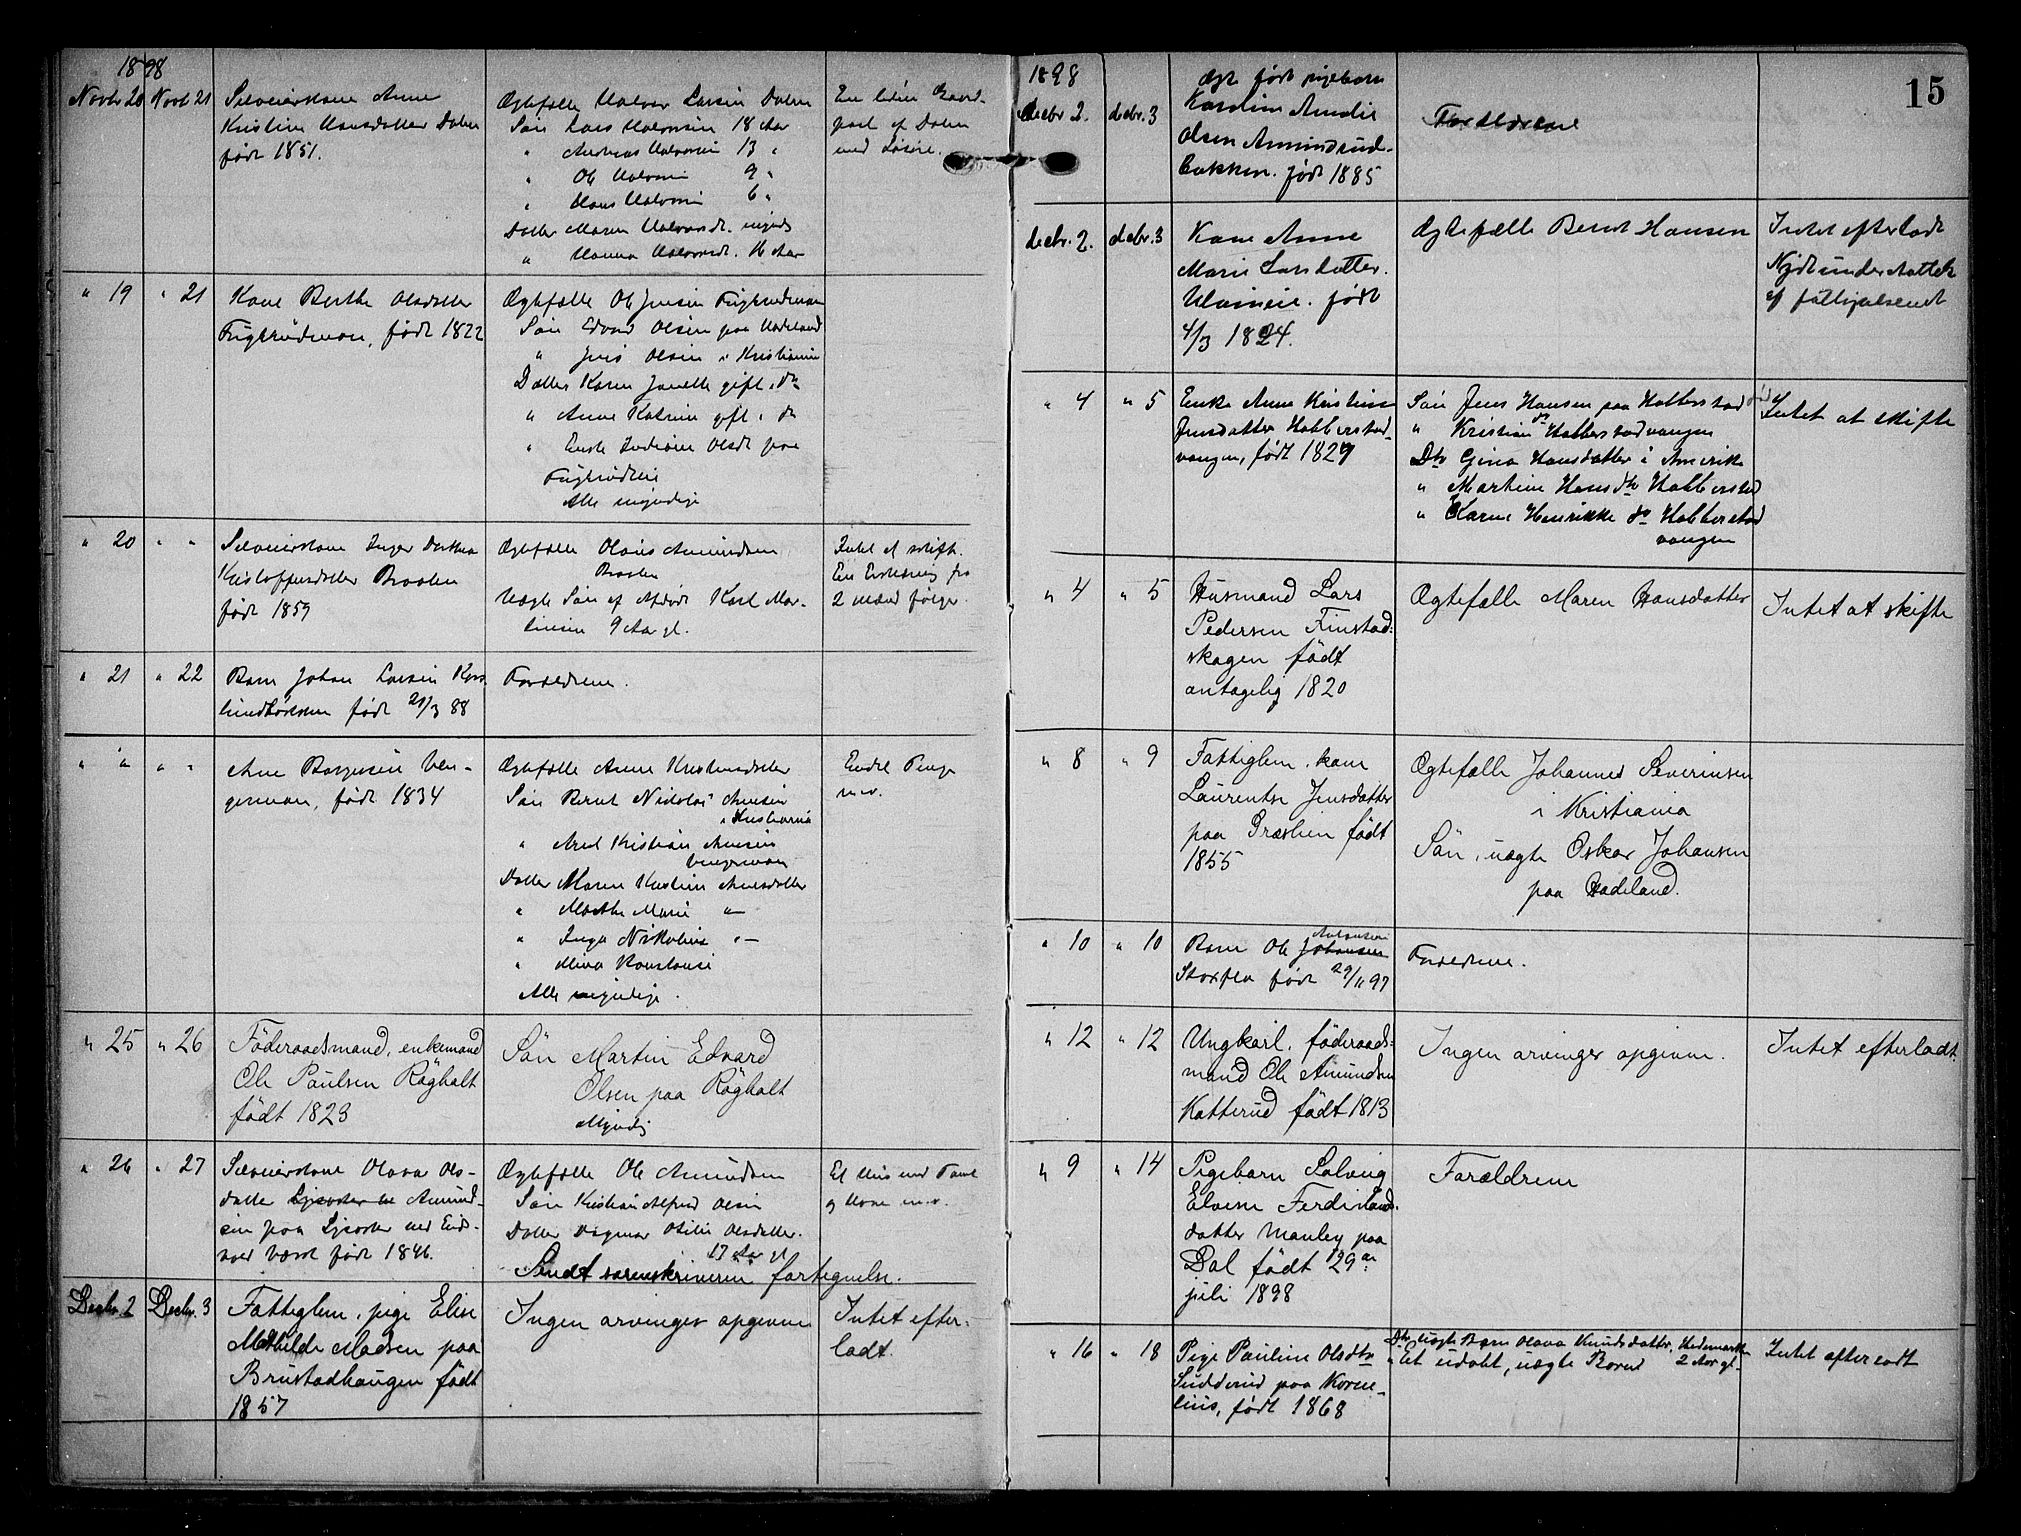 1898
Novbr 20 Novb 21 Selveierkone Anne
Kristine Hansdatter Dalen
født 1851.
Ægtefælle Halvor Larsen Dalen
Søn Lars Halvorsen 18 Aar
" Andreas Halvorsen 13 "
" Ole Halvorsen 9 "
" Hans Halvorsen 6 "
Datter Maren Halvorsdt. myndig
" Hanna Halvorsdt. 16 Aar
En liden Gaard-
part af Dalen
med Løsøre.
" 19 " 21 Kone Berthe Olsdatter
født 1822
Ægtefælle Ole Jensen
Søn Edvard Olsen paa Hadeland
" Jens Olsen i Kristiania
Datter Karen Janette gift i do
" Anne Katrine gift i do
" Enke Indiane Olsdt paa
Alle myndige
" 20 " " Selveierkone Inger Dorthea
Kristoffersdatter Braaten
født 1859
Ægtefælle Olaus Amundsen
Braaten
Uægte Søn af Afdøde Karl Mar-
tinsen 9 Aar gl.
Intet at skifte.
En Erklæring fra
2 Mænd følger
" 21 " 22 Barn Johan Larsen
født 21/3 88
Forældrene.
" " " " Arne Borgersen Ven-
germoen, født 1834
Ægtefælle Anne Kristensdatter
Søn Bernt Nicolai Arnesen
i Kristiania
" Axel Kristian Arnesen
Vengermoen
Datter Maren Kristine Arnesdatter
" Marthe Marie "—
" Inga Nikoline "—
" Mina Konstanse
Alle myndige.
Endel Penge
m.v.
" 25 " 26 Föderaadsmand, enkemand
Ole Paulsen Råghalt
födt 1823
Sön Martin Edvard
Olsen paa Råghalt
Myndig
" 26 " 27 Selveierkone Olava Ols-
datter Amund-
sen paa ved Eids-
vold Værk født 1846.
Ægtefælle Ole Amundsen
Søn Kristian Alfred Olsen
Datter Dagmar Otilie Olsdatter.
17 Aar gl
Et Hus med Tomt
og Have m.v.
Sendt sorenskriveren fortegnelse.
Decbr. 2 Decbr. 3 Fattiglem, pige Elise
Mathilde Madsen paa
Brustadhaugen født
1857
Ingen arvinger opgivne
Intet efter-
ladt.
15
1898
decbr 2. decbr. 3 Ægte født pigebarn
Karoline Amalie
Olsen Amundsrud-
bakken. født 1885
Forældrene
decbr. 2. decbr. 3 Kone Anne
Marie Larsdatter.
født
4/3 1824.
Ægtefælle Bernt Hansen
Intet efterladt
Nydt understøttelse
af fattigvæsenet
" 4 " 5 Enke Anne Kristine
Jensdatter Habberstad-
vangen, født 1829
Søn Jens Hansen paa Habberstad
" Kristian do Habberstadvangen
Dtr Gina Hansdatter i Amerika
" Martine Hansdtr Habberstad
" Karen Henrikke do Habberstad
vangen
Intet at skifte
" 4 " 5 Husmand Lars
Pedersen Finstad-
skogen födt
antagelig 1820
Ægtefælle Maren Hansdatter
Intet at skifte
" 8 " 9 Fattiglem, kone
Laurentse Jensdatter
paa Græslien födt
1855
Ægtefælle Johannes Severinsen
i Kristiania
Sön, uægte Oskar Johansen
paa Hadeland.
" 10 " 10 Barn Ole Johansen Antonsen
Storflo født 29/11 97
Forældrene.
" 12 " 12 Ungkarl, föderaads-
mand Ole Amundsen
Katterud født 1813
Ingen arvinger opgivne.
Intet efterladt.
" 9 " 14 Pigebarn Solveig
Elvine Ferdinand-
datter Manley paa
Dal født 29de
juli 1898
Forældrene
" 16 " 18 Pige Pauline Olsdtr
Sudderud paa Korne-
lius, født 1868
Dtr uægte Barn Olava Knudsdatter, Hedemarken
2 Aar gl.
" Et udøbt, uægte Barn
Intet efterladt